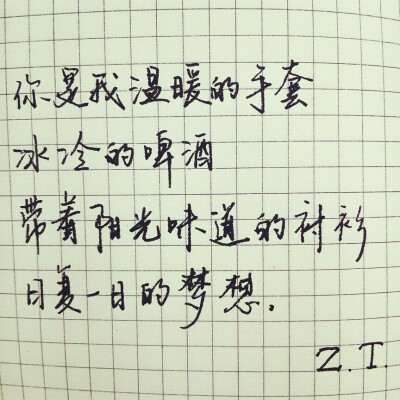 你是我温暖的手套
冰冷的啤酒
带着阳光味道的衬衫
日复一日的梦想.
Z.T.